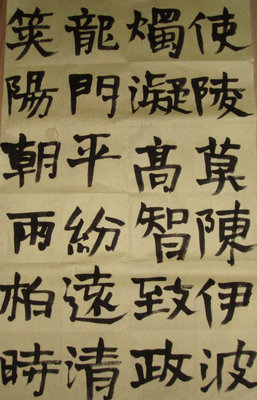 使陵莫陳伊波
燭凝高智致政
龍門平紛遠清
筴陽朝雨柏時